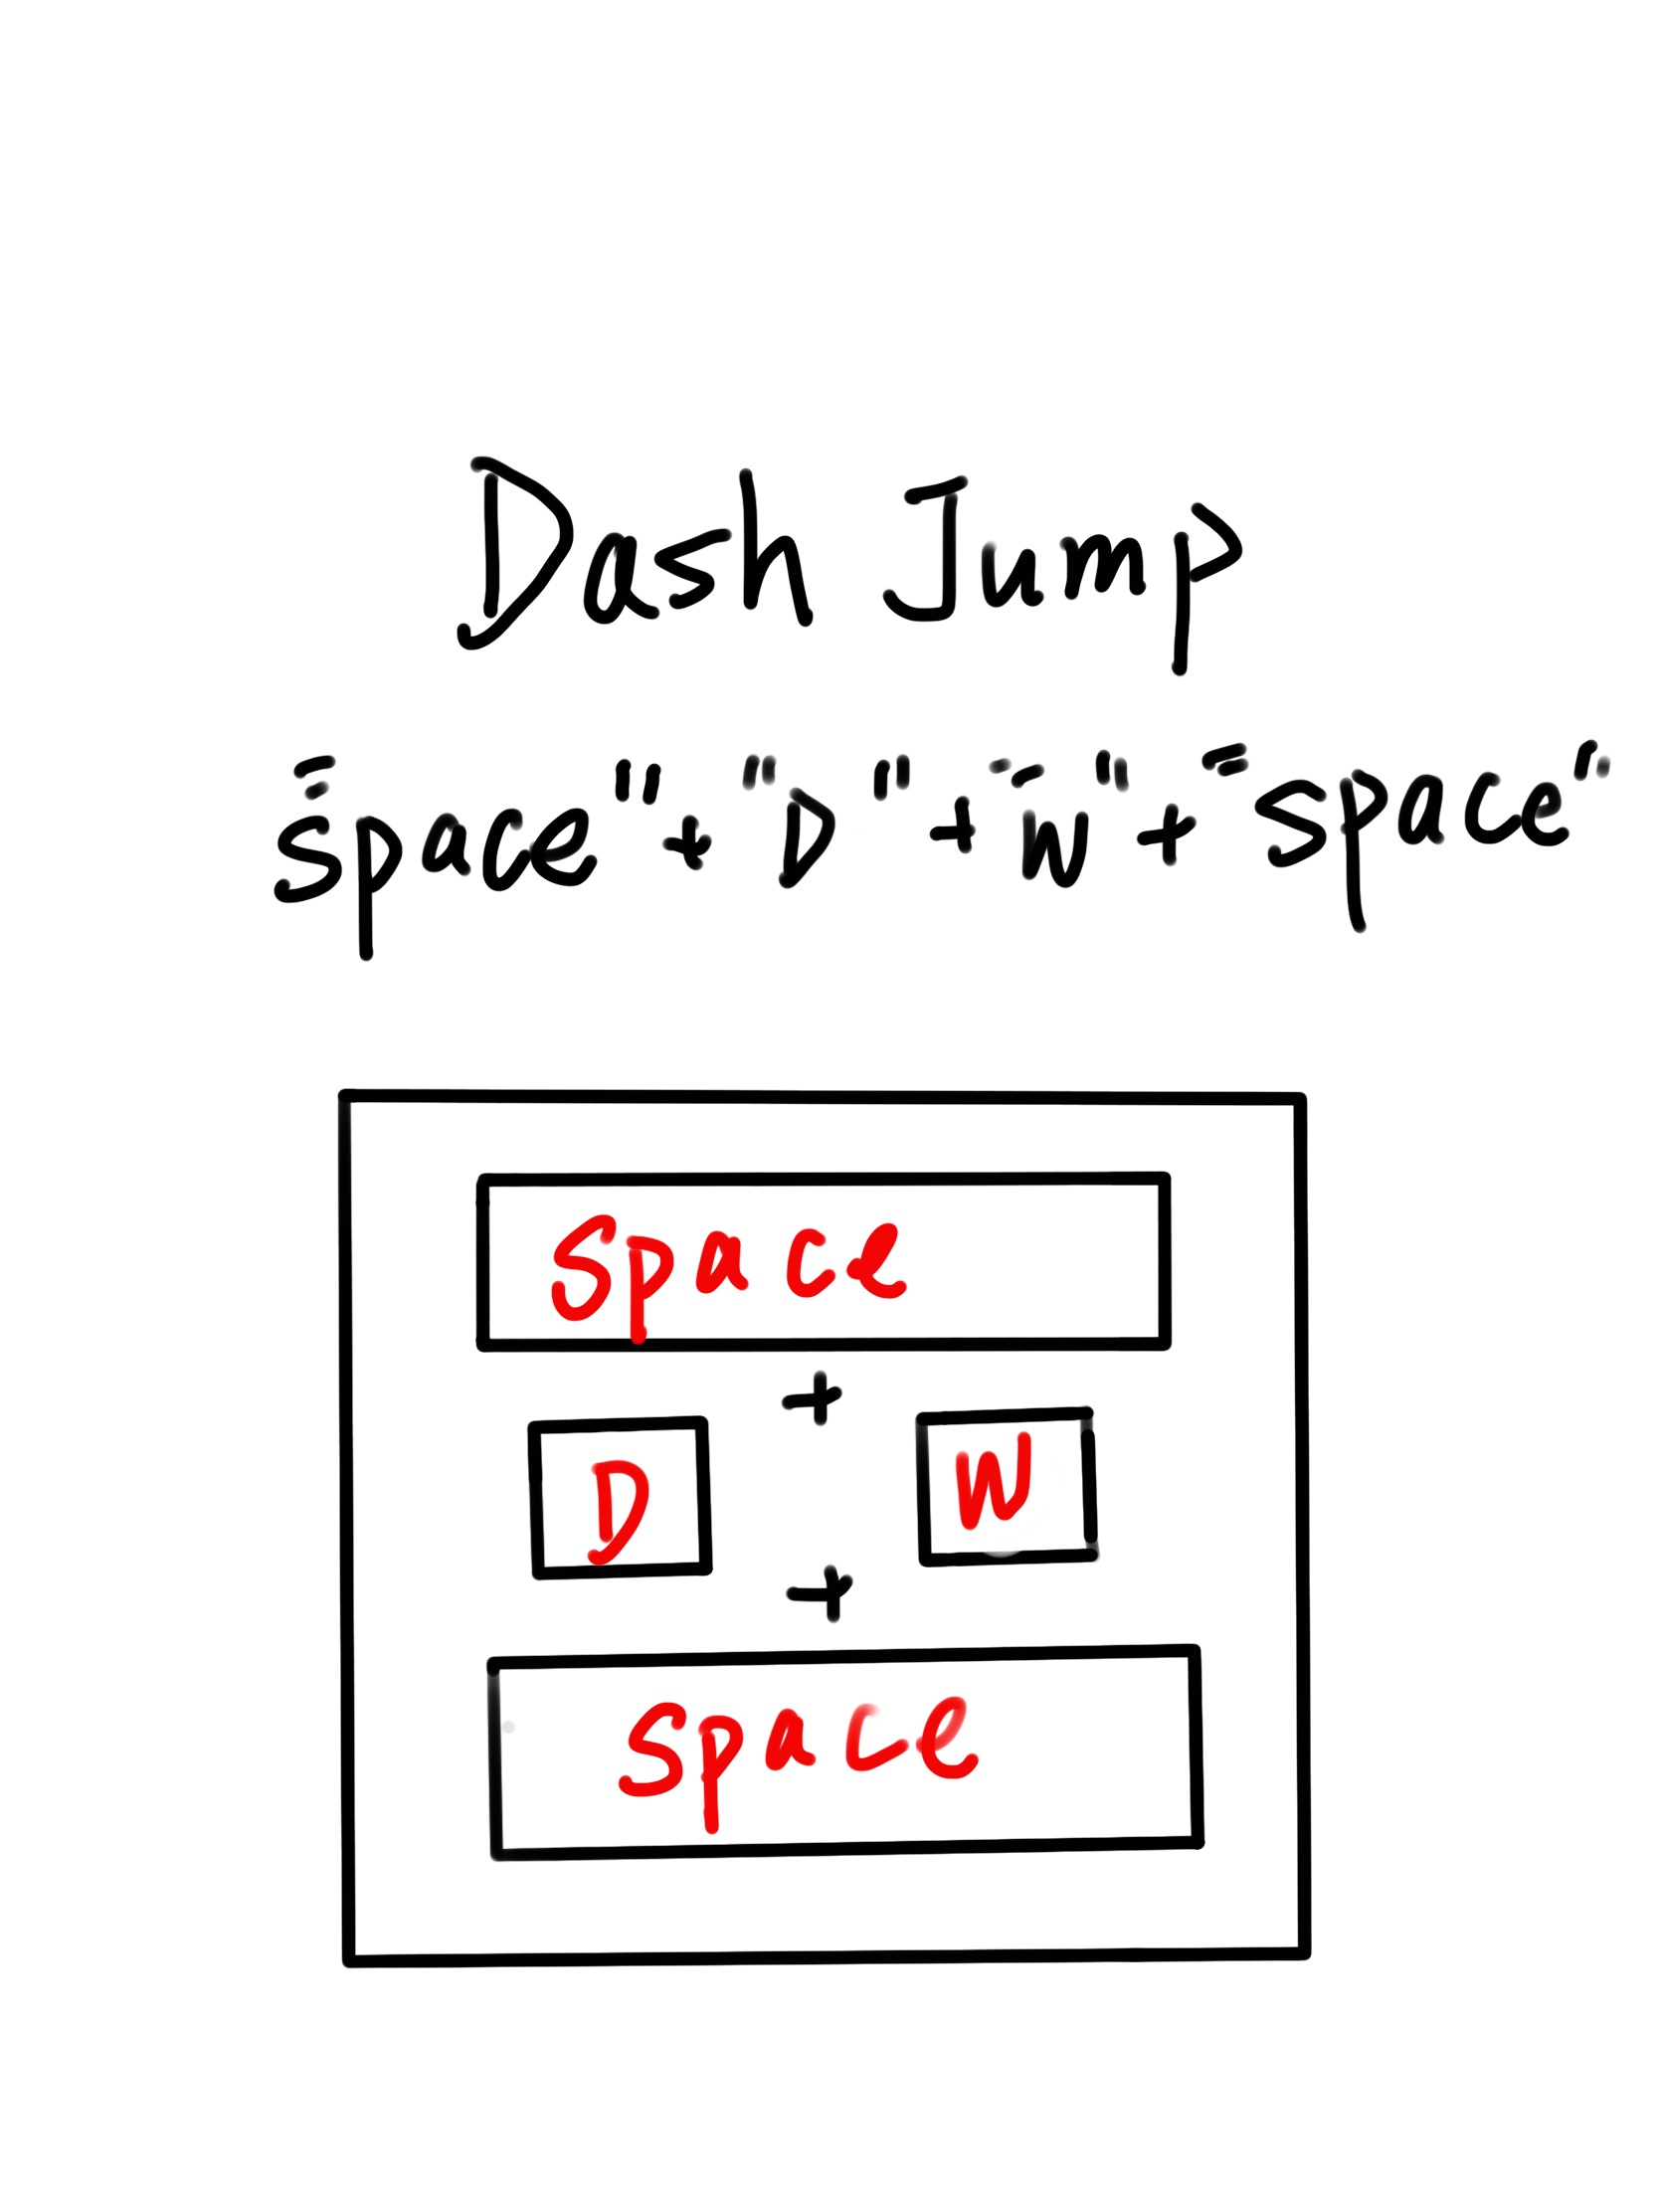 Dash Jump
"space"+"D"+"W"+"space"
Space
+
D W
+
Space